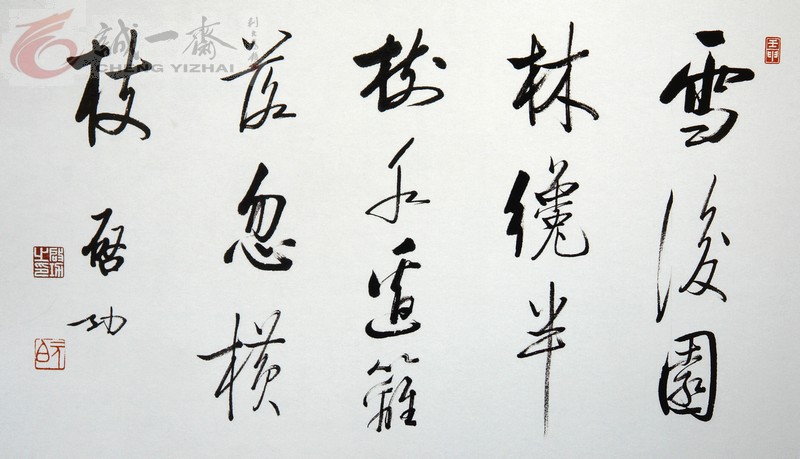 雪後園
林纔半
樹水邊籬
落忽橫
枝
啟功
誠一齋
CHENG YIZHAI